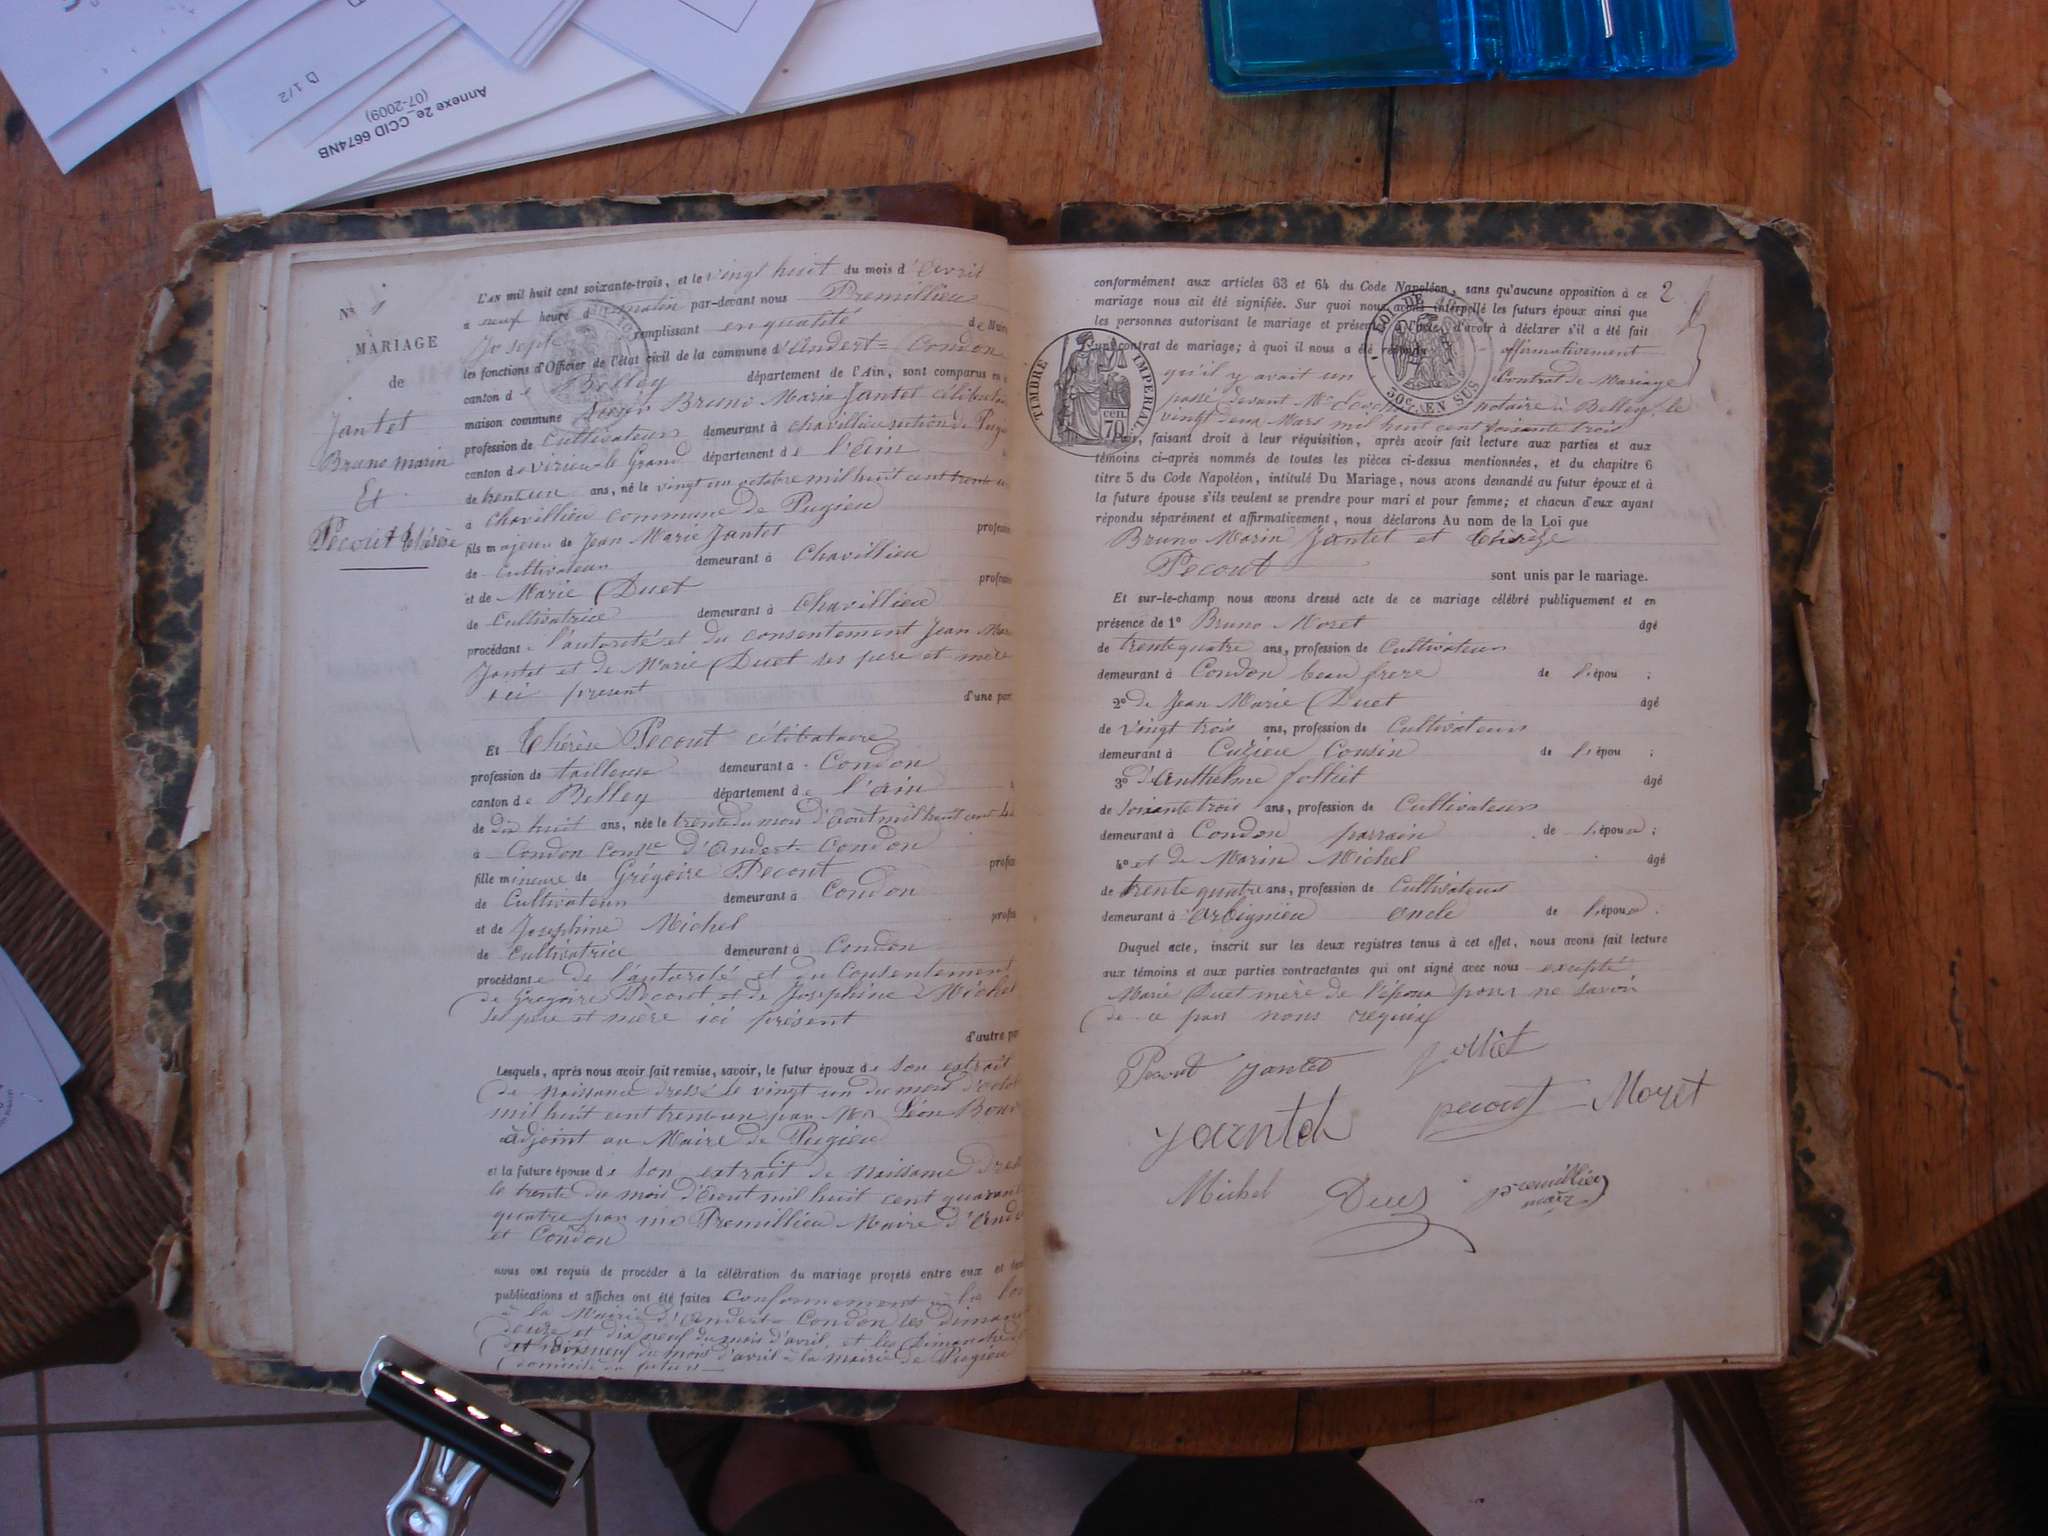 D 1/2
Annexe 2e_CCID 6674NB
(07-2009)
N° 1
MARIAGE
de
Jantet
Bruno marin
Et
Pecout thérèse
L'AN mil huit cent soixante-trois, et le vingt huit du mois d'avril
a neuf heure d matin par-devant nous Premillieu
Joseph remplissant en qualité de Maire
les fonctions d'Officier de l'état civil de la commune d'Andert-Condon
canton de Belley département de l'Ain, sont comparus en
maison commune Bruno Marie Jantet célibataire
profession de Cultivateur demeurant à chavillieu section de Pugieu
canton de virieu-le Grand département de l'ain
de trent un ans, né le vingt un octobre mil huit cent trente un
a Chavillieu commune de Pugieu
fils majeur de Jean Marie Jantet profession
de Cultivateur demeurant à Chavillieu
et de Marie Duet profession
de Cultivatrice demeurant à Chavillieu
procédant l'autorité et du consentement Jean Marie
Jantet et de Marie Duet ses pere et mère
ici present d'une part
Et thérèse Pecout célibataire
profession de tailleuse demeurant a Condon
canton de Belley département de l'ain
de dix huit ans, née le trente du mois d'août mil huit cent 44
a Condon Comne d'Andert-Condon
fille mineure de Grégoire Pecout profes
de Cultivateur demeurant à Condon
et de Josephine Michel profes
de Cultivatrice demeurant à Condon
procédante de l'autorité et du Consentement
de Grégoire Pecout et de Josephine Michel
ses pere et mère ici présent
d'autre part
Lesquels, après nous avoir fait remise, savoir, le futur époux de son extrait
de naissance dressé le vingt un du mois d'octob
mil huit cent trent-un par Mr Léon Bon
adjoint au Maire de Pugieu
et la future épouse de son extrait de naissance dres
le trente du mois d'aout mil huit cent quarant
quatre par mr Premillieu Maire d'And
et Condon
nous ont requis de procéder à la célébration du mariage projeté entre eux et dont
publications et affiches ont été faites conformement a la loi
à la Mairie d'Andert-Condon les dimanc
douze et dix neuf du mois d'avril, et les Dimanche
et dix neuf du mois d'avril à la mairie de Pugieu
domicile du futur
2
conformément aux articles 63 et 64 du Code Napoléon, sans qu'aucune opposition à ce
mariage nous ait été signifiée. Sur quoi nous avons interpellé les futurs époux ainsi que
les personnes autorisant le mariage et présentes à l'acte, d'avoir à déclarer s'il a été fait
un contrat de mariage; à quoi il nous a été répondu affirmativement
qu'il y avait un Contrat de Mariage
passé devant Mr notaire à Belley le
vingt deux Mars mil huit cent soixante trois
TIMBRE IMPERIAL
70 cen.
LOI DE
50c EN SUS
faisant droit à leur réquisition, après avoir fait lecture aux parties et aux
témoins ci-après nommés de toutes les pièces ci-dessus mentionnées, et du chapitre 6
titre 5 du Code Napoléon, intitulé Du Mariage, nous avons demandé au futur époux et à
la future épouse s'ils veulent se prendre pour mari et pour femme; et chacun d'eux ayant
répondu séparément et affirmativement, nous déclarons Au nom de la Loi que
Bruno Marin Jantet et thérèze
Pecout sont unis par le mariage.
Et sur-le-champ nous avons dressé acte de ce mariage célébré publiquement et en
présence de 1° Bruno Moret âgé
de trente quatre ans, profession de Cultivateur
demeurant à Condon beau frere de l'épou ;
2° de Jean Marie Duet âgé
de vingt trois ans, profession de Cultivateur
demeurant à Cuzieu Cousin de l'épou ;
3° d'Anthelme Jolliet âgé
de soixante trois ans, profession de Cultivateur
demeurant à Condon parrain de l'épouse ;
4° et de Marin Michel âgé
de trente quatre ans, profession de Cultivateur
demeurant à Arbignieu oncle de l'épouse .
Duquel acte, inscrit sur les deux registres tenus à cet effet, nous avons fait lecture
aux témoins et aux parties contractantes qui ont signé avec nous excepté
Marie Duet mère de l'époux pour ne savoir
de ce par nous requise
Pecout Jantet Jolliet
Jantet pecout Moret
Michel Duet premillieu
maire